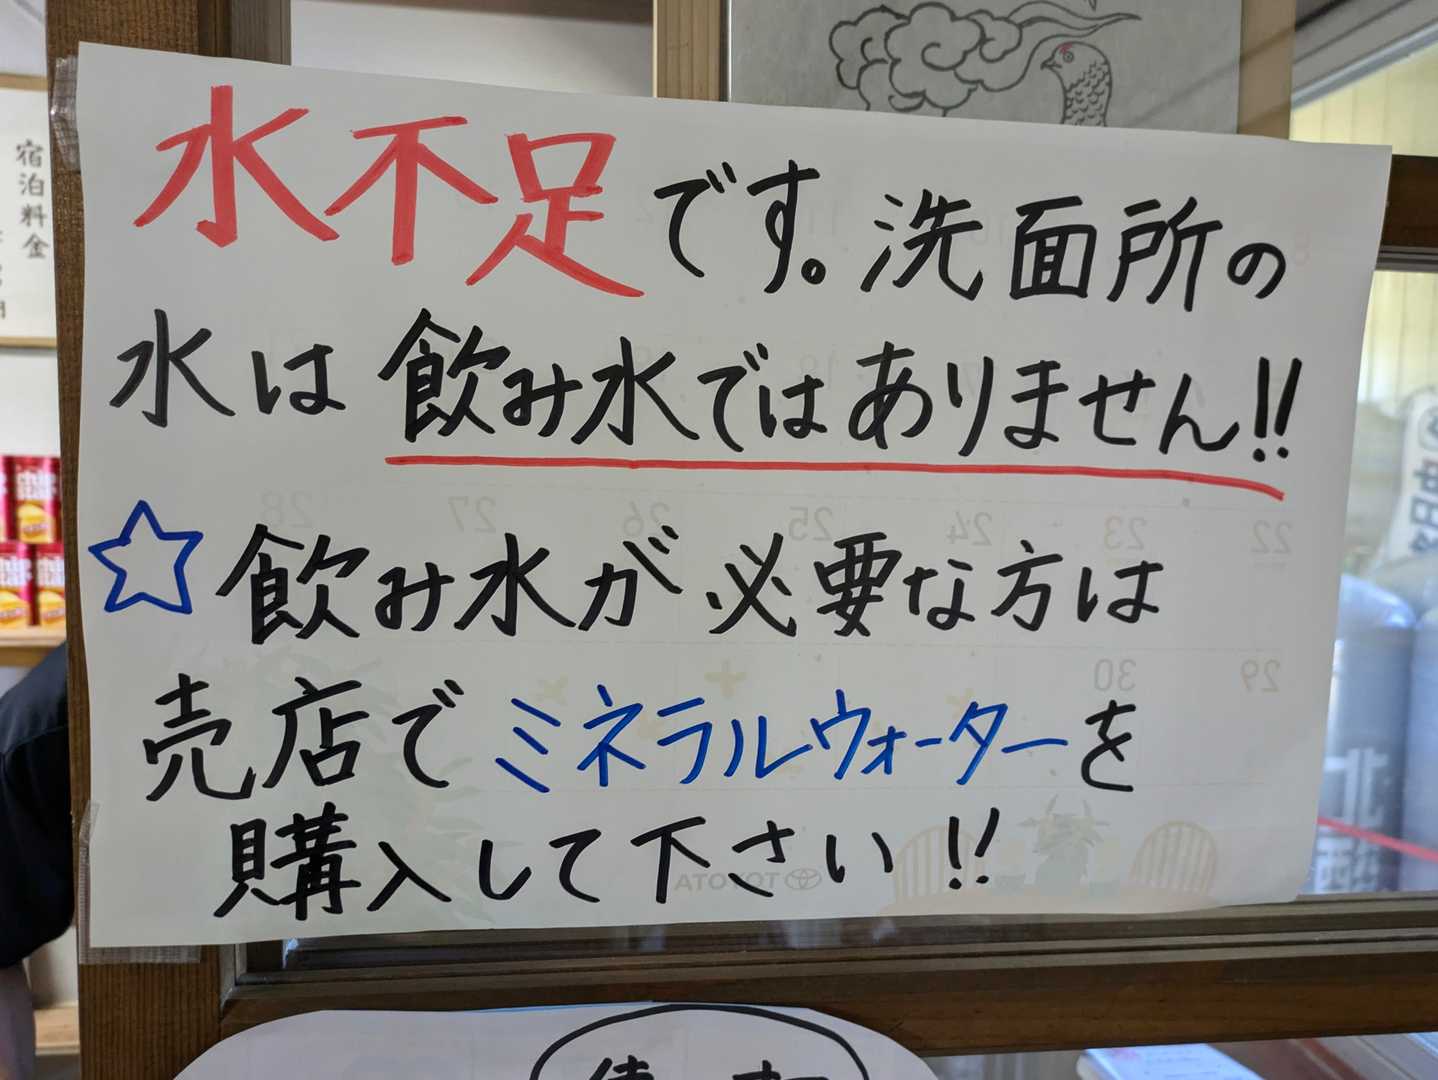 水不足です。洗面所の
水は飲み水ではありません!!
☆飲み水が必要な方は
売店でミネラルウォーターを
購入して下さい!!
宿泊料金
22 23 24 25 26 27 28
29 30
TOYOTA